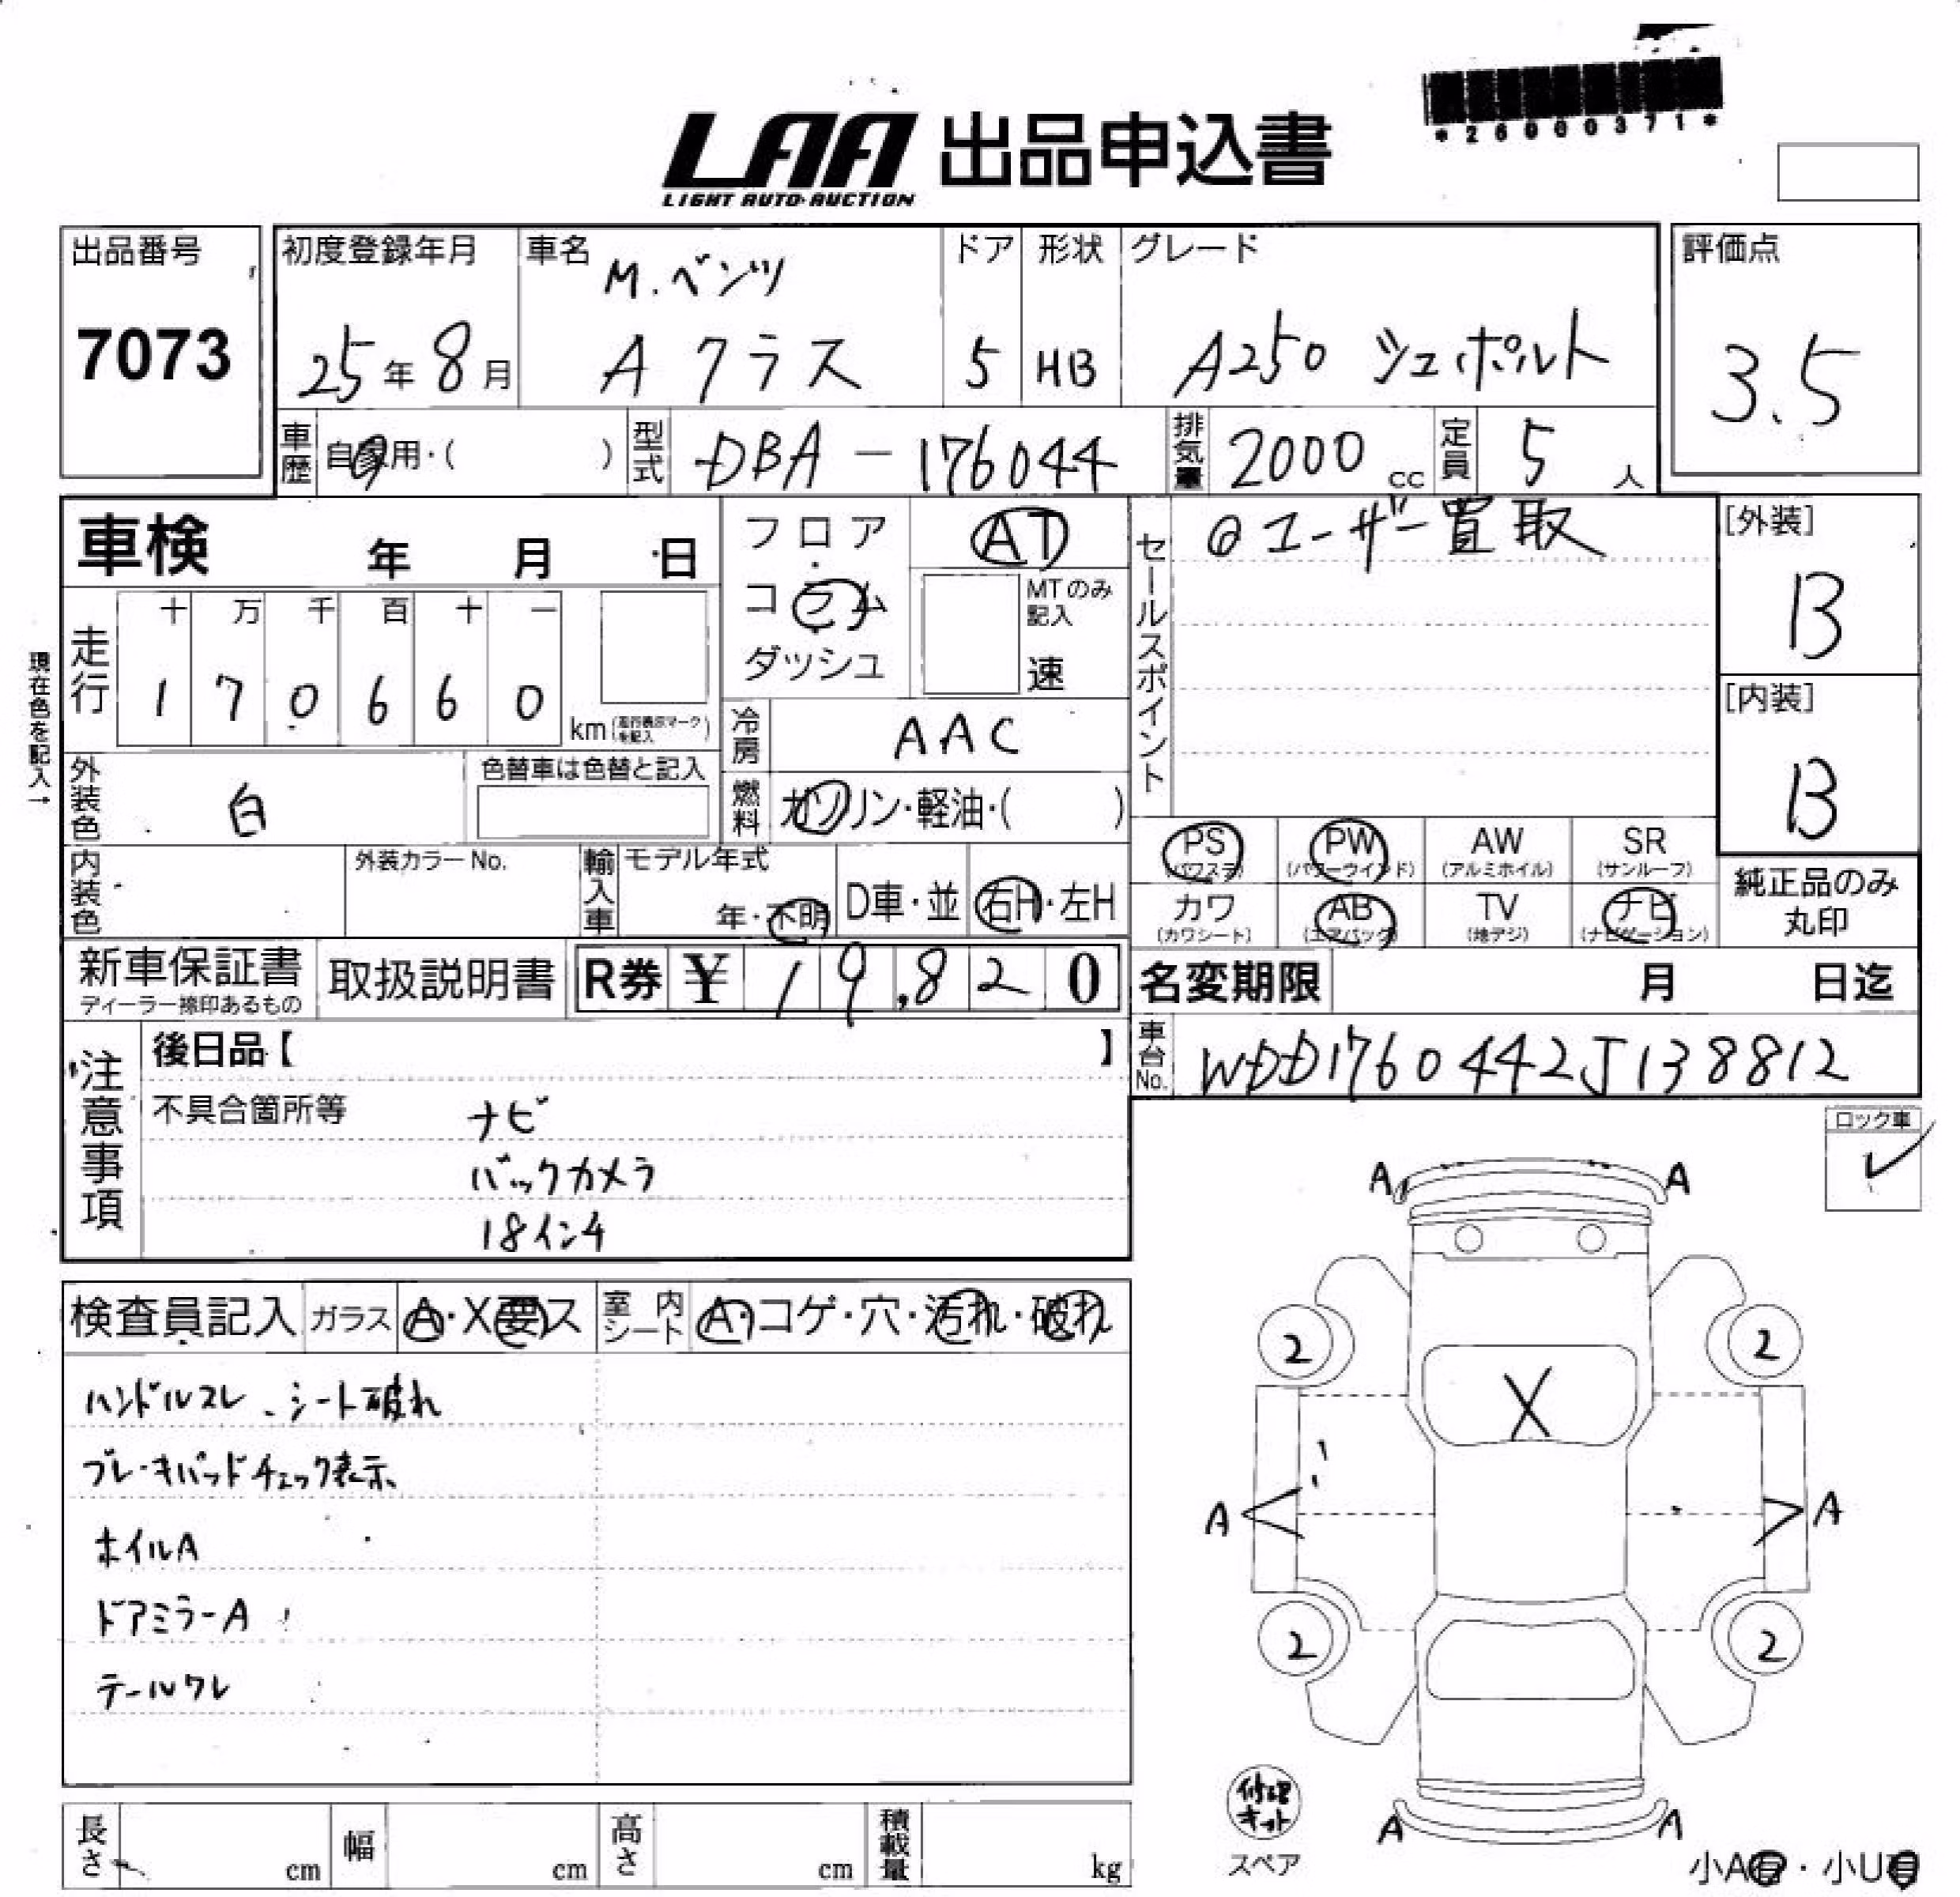 *26000371*
LAA 出品申込書
LIGHT AUTO AUCTION
出品番号
7073
初度登録年月
25年8月
車名
M.ベンツ
Aクラス
ドア
5
形状
HB
グレード
A250 シュポルト
評価点
3.5
車歴 自家用・( )
型式 DBA-176044
排気量 2000cc
定員 5人
車検 年 月 日
フロア
コラム
ダッシュ
AT
MTのみ記入
速
セールスポイント
◎ユーザー買取
[外装]
B
[内装]
B
現在色を記入→
走行
十 万 千 百 十 一
1 7 0 6 6 0
km(走行表示マークを記入)
冷房 AAC
外装色 白
色替車は色替と記入
燃料 ガソリン・軽油・( )
内装色
外装カラーNo.
輸入車
モデル年式
年・不明
D車・並
右H・左H
PS
(パワステ)
PW
(パワーウインド)
AW
(アルミホイル)
SR
(サンルーフ)
カワ
(カワシート)
AB
(エアバック)
TV
(地デジ)
ナビ
(ナビゲーション)
純正品のみ
丸印
新車保証書
ディーラー捺印あるもの
取扱説明書
R券 ¥ 19,820
名変期限 月 日迄
車台No. WDD1760442J138812
注意事項
後日品【 】
不具合箇所等
ナビ
バックカメラ
18インチ
ロック車
✓
検査員記入
ガラス A・X要ス
室内シート A・コゲ・穴・汚れ・破れ
ハンドルスレ、シート破れ
ブレーキパッドチェック表示
ホイルA
ドアミラーA
テールワレ
A A
2 2
X
A A
2 2
A A
修理キット
スペア
小A有・小U有
長さ cm
幅 cm
高さ cm
積載量 kg